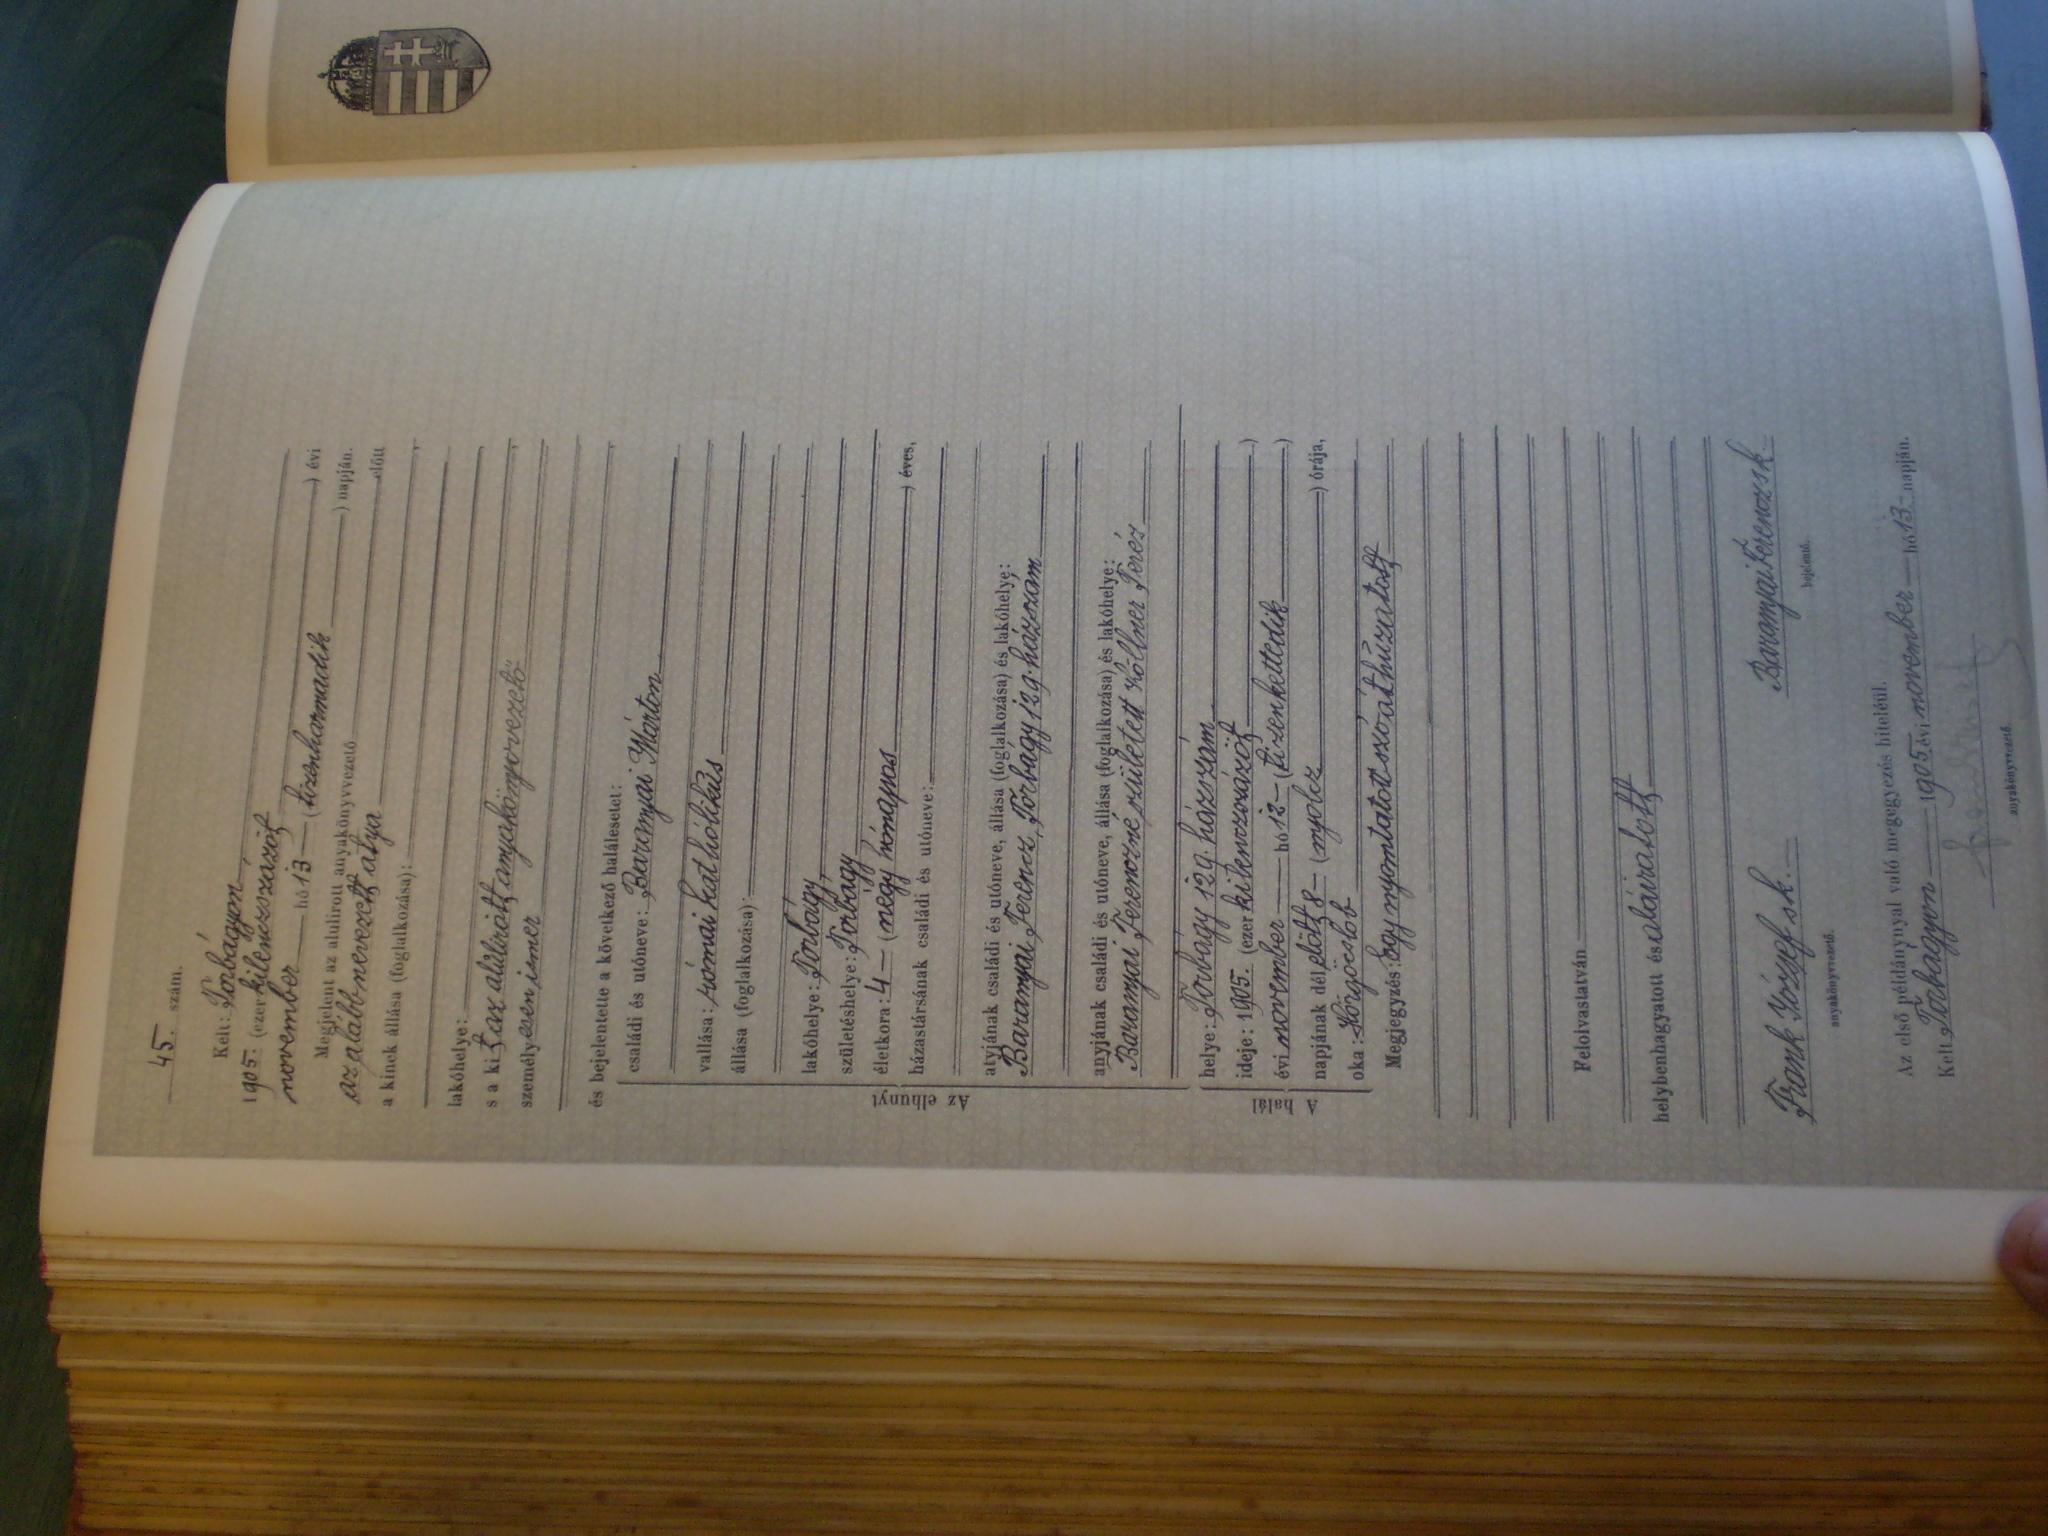 45. szám.
Kelt: Torbágyon,
1905. (ezer kilenczszázöt) évi
november hó 13 (tizenharmadik) napján.
Megjelent az alulirott anyakönyvvezető előtt
az alább nevezett atya
a kinek állása (foglalkozása):
lakóhelye:
s a kit az alulirott anyakönyvvezető
személyesen ismer
és bejelentette a következő halálesetet:
Az elhunyt
családi és utóneve: Baranyai Márton
vallása: római katholikus
állása (foglalkozása):
lakóhelye: Torbágy,
születéshelye: Torbágy
életkora: 4 (négy hónapos) éves,
házastársának családi és utóneve:
atyjának családi és utóneve, állása (foglalkozása) és lakóhelye:
Baranyai Ferencz, Torbágy 129. házszám
anyjának családi és utóneve, állása (foglalkozása) és lakóhelye:
Baranyai Ferenczné született Köllner Teréz
A halál
helye: Torbágy 129 házszám
ideje: 1905. (ezer kilenczszázöt)
évi november hó 12 (tizenkettedik)
napjának dél előtt 8 (nyolcz) órája,
oka: Hörgőcslob
Megjegyzés: Egy nyomtatott szó áthúzatott
Felolvastatván
helybenhagyatott és aláiratott
Frank József sk.
anyakönyvvezető.
Baranyai Ferencz sk
bejelentő.
Az első példánynyal való megegyezés hiteléül.
Kelt Torbágyon 1905 évi november hó 13 napján.
anyakönyvvezető